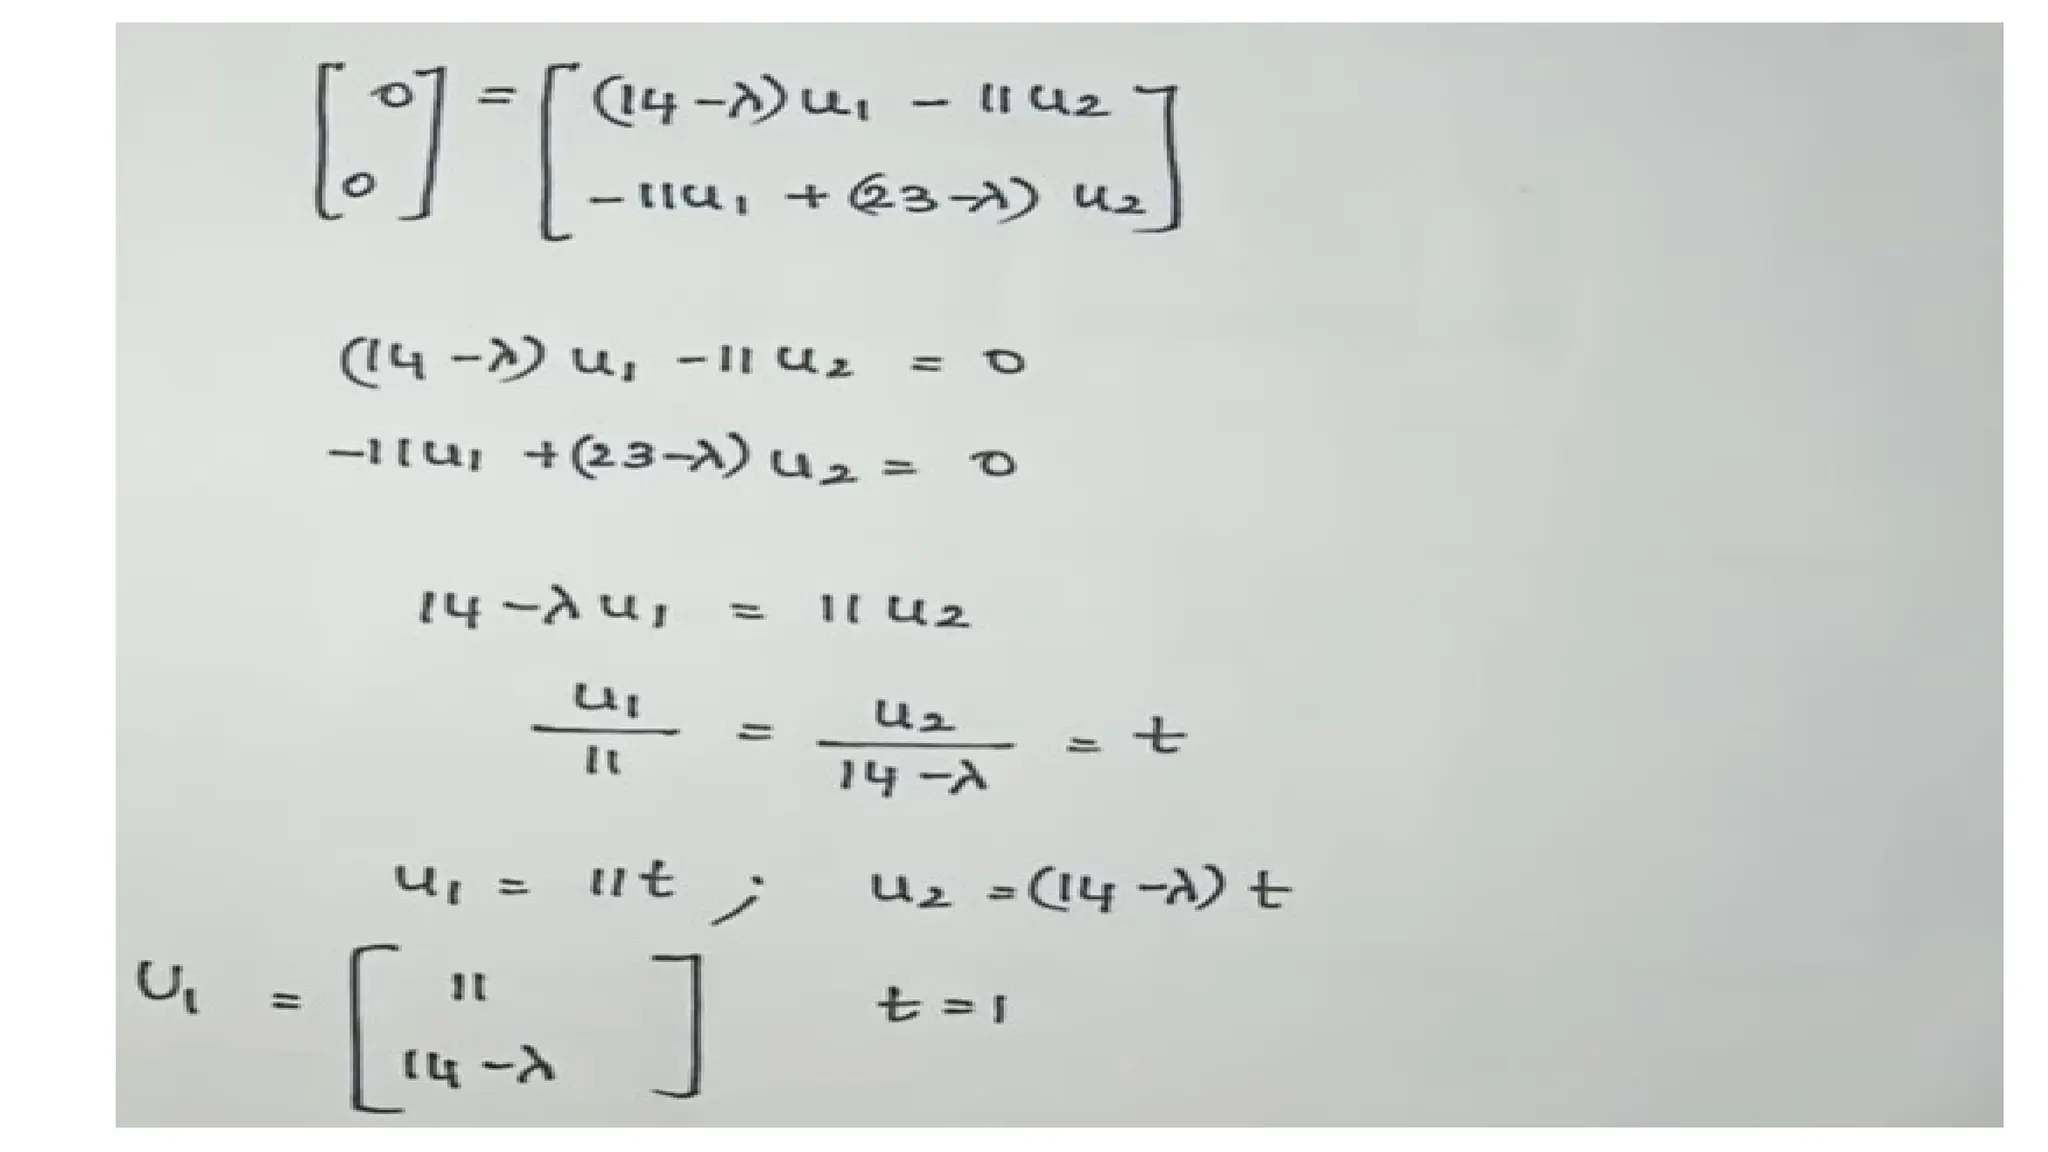 [0 0] = [(14-λ)u₁ - 11u₂
-11u₁ + (23-λ) u₂]
(14-λ)u₁ - 11u₂ = 0
-11u₁ + (23-λ)u₂ = 0
14-λu₁ = 11u₂
u₁/11 = u₂/14-λ = t
u₁ = 11t ; u₂ = (14-λ)t
U₁ = [11 14-λ] t = 1